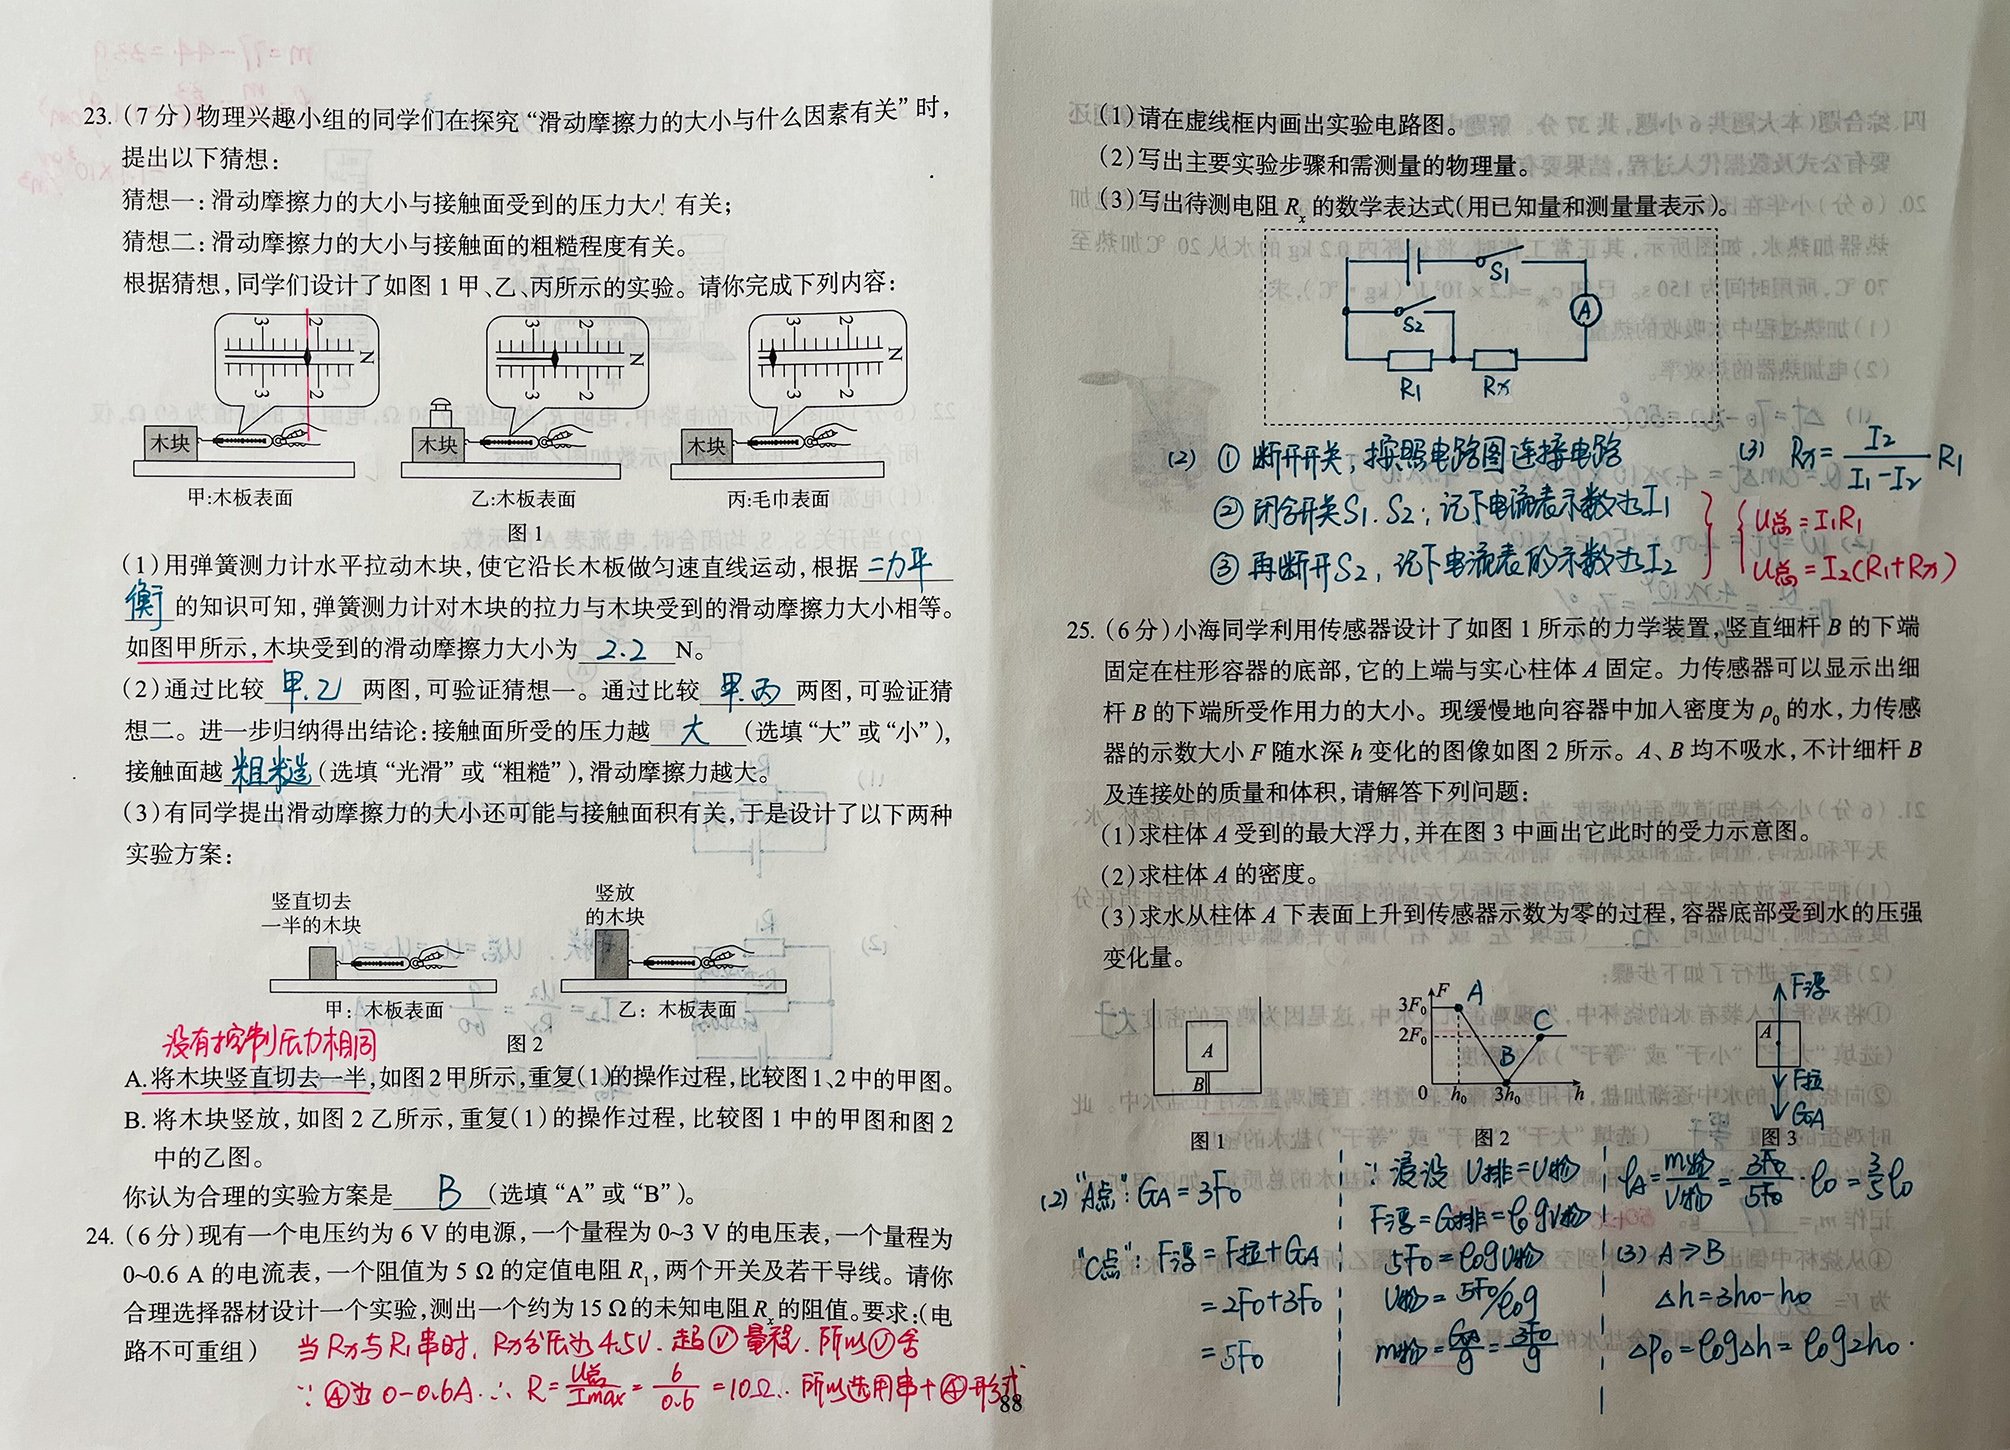 23.(7分)物理兴趣小组的同学们在探究“滑动摩擦力的大小与什么因素有关”时,
提出以下猜想:
猜想一:滑动摩擦力的大小与接触面受到的压力大小有关;
猜想二:滑动摩擦力的大小与接触面的粗糙程度有关。
根据猜想,同学们设计了如图1甲、乙、丙所示的实验。请你完成下列内容:
3 2 N 3 2
3 2 N 3 2
3 2 N 3 2
木块 木块 木块
甲:木板表面 乙:木板表面 丙:毛巾表面
图1
(1)用弹簧测力计水平拉动木块,使它沿长木板做匀速直线运动,根据 二力平
衡 的知识可知,弹簧测力计对木块的拉力与木块受到的滑动摩擦力大小相等。
如图甲所示,木块受到的滑动摩擦力大小为 2.2 N。
(2)通过比较 甲.乙 两图,可验证猜想一。通过比较 甲.丙 两图,可验证猜
想二。进一步归纳得出结论:接触面所受的压力越 大 (选填“大”或“小”),
接触面越 粗糙 (选填“光滑”或“粗糙”),滑动摩擦力越大。
(3)有同学提出滑动摩擦力的大小还可能与接触面积有关,于是设计了以下两种
实验方案:
竖直切去
一半的木块
竖放
的木块
甲:木板表面 乙:木板表面
没有控制压力相同
图2
A.将木块竖直切去一半,如图2甲所示,重复(1)的操作过程,比较图1、2中的甲图。
B.将木块竖放,如图2乙所示,重复(1)的操作过程,比较图1中的甲图和图2
中的乙图。
你认为合理的实验方案是 B (选填“A”或“B”)。
24.(6分)现有一个电压约为6 V的电源,一个量程为0~3 V的电压表,一个量程为
0~0.6 A的电流表,一个阻值为5 Ω的定值电阻R₁,两个开关及若干导线。请你
合理选择器材设计一个实验,测出一个约为15 Ω的未知电阻Rₓ的阻值。要求:(电
路不可重组)
当Rx与R1串时,Rx分压为4.5V.超Ⓥ量程.所以Ⓥ舍
∵Ⓐ为0-0.6A.∴R=U总/Imax=6/0.6=10Ω.所以选用串+Ⓐ形式
88
(1)请在虚线框内画出实验电路图。
(2)写出主要实验步骤和需测量的物理量。
(3)写出待测电阻Rₓ的数学表达式(用已知量和测量量表示)。
S1
A
S2
R1 Rx
(2) ①断开开关,按照电路图连接电路
②闭合开关S1.S2;记下电流表示数为I1
③再断开S2,记下电流表的示数为I2
(3) Rx=I2/(I1-I2) R1
U总=I1R1
U总=I2(R1+Rx)
25.(6分)小海同学利用传感器设计了如图1所示的力学装置,竖直细杆B的下端
固定在柱形容器的底部,它的上端与实心柱体A固定。力传感器可以显示出细
杆B的下端所受作用力的大小。现缓慢地向容器中加入密度为ρ₀的水,力传感
器的示数大小F随水深h变化的图像如图2所示。A、B均不吸水,不计细杆B
及连接处的质量和体积,请解答下列问题:
(1)求柱体A受到的最大浮力,并在图3中画出它此时的受力示意图。
(2)求柱体A的密度。
(3)求水从柱体A下表面上升到传感器示数为零的过程,容器底部受到水的压强
变化量。
A
B
图1
F
3F₀ A
2F₀ C
B
0 h₀ 3h₀ h
图2
F浮
A
F拉
GA
图3
(2)“A点”:GA=3F0
“C点”:F浮=F拉+GA
=2F0+3F0
=5F0
∵浸没 V排=V物
F浮=G排=ρ0gV物
5F0=ρ0gV物
V物=5F0/ρ0g
m物=GA/g=3F0/g
ρA=m物/V物=3F0/5F0·ρ0=3/5ρ0
(3)A→B
Δh=3h0-h0
Δp0=ρ0gΔh=ρ0g2h0.